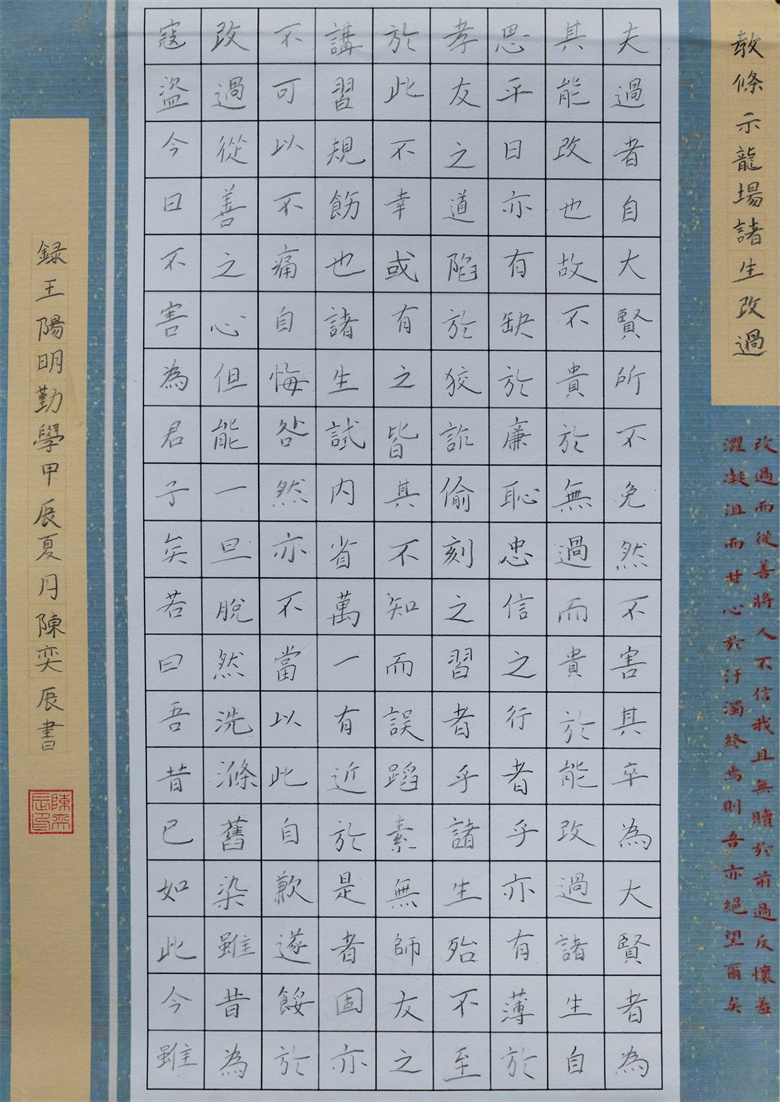 教條示龍場諸生改過
夫過者自大賢所不免然不害其卒為大賢者為
其能改也故不貴於無過而貴於能改過諸生自
思平日亦有缺於廉恥忠信之行者乎亦有薄於
孝友之道陷於狡詐偷刻之習者乎諸生殆不至
於此不幸或有之皆其不知而誤蹈素無師友之
講習規飭也諸生試内省萬一有近於是者固亦
不可以不痛自悔咎然亦不當以此自歉遂餒於
改過從善之心但能一旦脫然洗滌舊染雖昔為
寇盜今日不害為君子矣若曰吾昔已如此今雖
改過而從善將人不信我且無贖於前過反懷羞
澀凝沮而甘心於汙濁終焉則吾亦絕望爾矣
録王陽明勤學甲辰夏月陳奕辰書
陳奕辰印